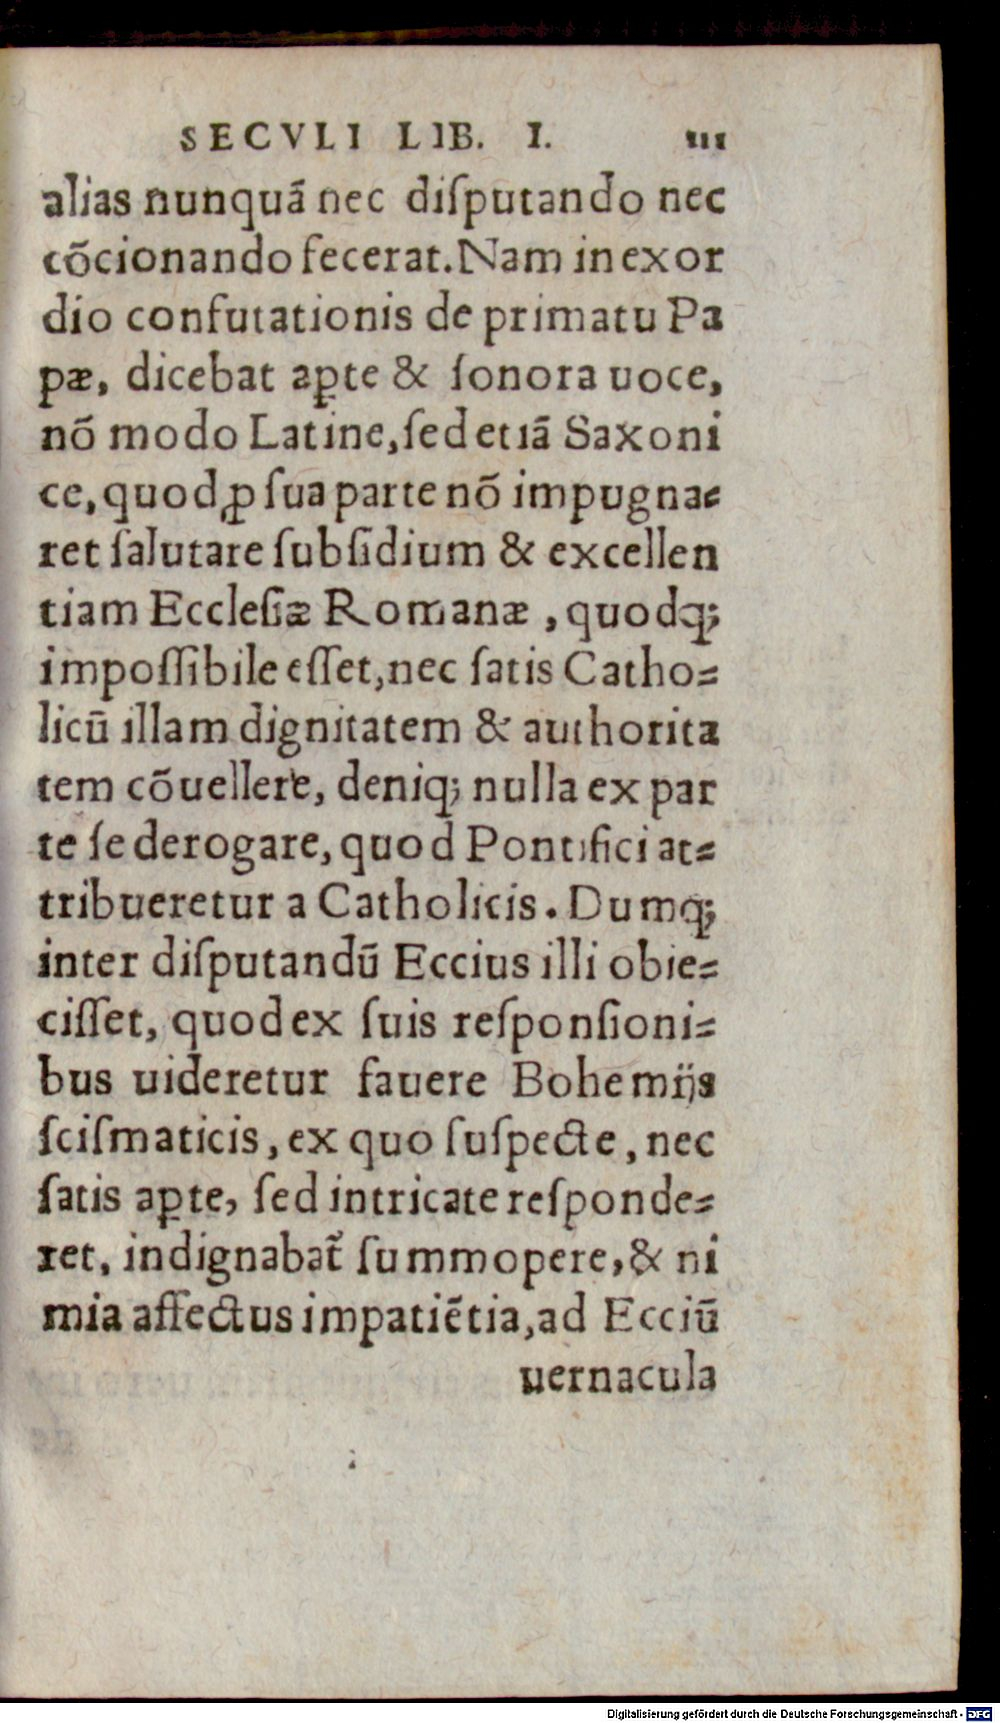 SECVLI LIB. I. 111
alias nunquā nec diſputando nec
cōcionando fecerat. Nam in exor
dio confutationis de primatu Pa
pæ, dicebat aꝑte & ſonora uoce,
nō modo Latine, ſed etiā Saxoni
ce, quod ꝓ ſua parte nō impugna⸗
ret ſalutare ſubſidium & excellen
tiam Eccleſiæ Romanæ, quodq́;
impoſſibile eſſet, nec ſatis Catho⸗
licū illam dignitatem & authorita
tem cōuellere, deniq; nulla ex par
te ſe derogare, quod Pontifici at⸗
tribueretur a Catholicis. Dumq́;
inter diſputandū Eccius illi obie⸗
ciſſet, quod ex ſuis reſponſioni⸗
bus uideretur fauere Bohemijs
ſciſmaticis, ex quo ſuſpecte, nec
ſatis aꝑte, ſed intricate reſponde⸗
ret, indignabat᷑ ſummopere, & ni
mia affectus impatiētia, ad Ecciū
uernacula
Digitalisierung gefördert durch die Deutsche Forschungsgemeinschaft - DFG